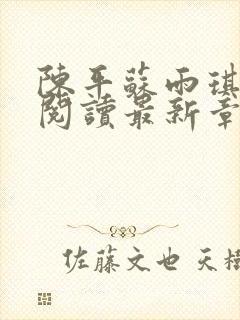 陳平蘇雨琪
閱讀最新章
佐藤文也 天樹